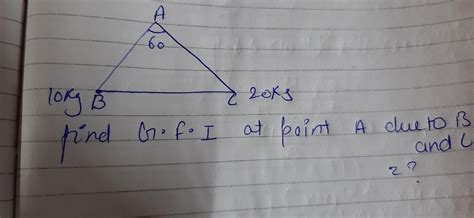 A
60
10kg B C 20kg
find G.F.I at point A due to B
and C
?